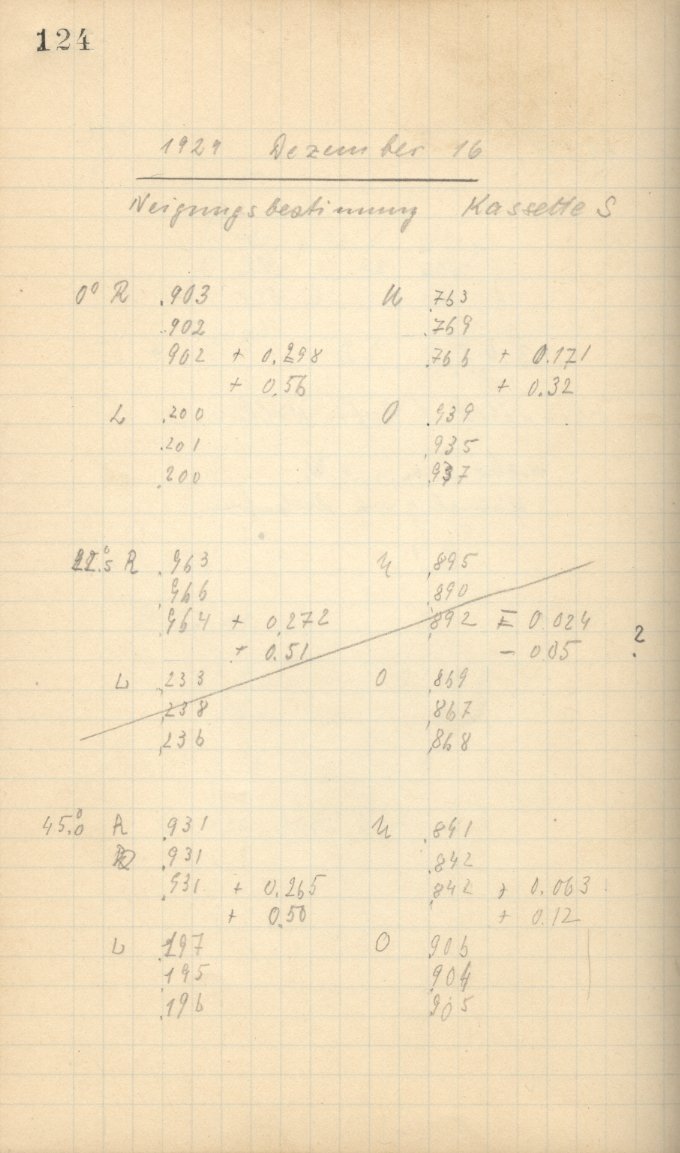 124
1929 Dezember 16
Neigungsbestimmung Kassette S
0° R .903 U .763
.902 .769
902 + 0.298 .766 + 0.171
+ 0.56 + 0.32
L .200 O .939
.201 .935
.200 .937
22°.5 R .963 U .895
.966 .890
.964 + 0.272 .892 - 0.024
+ 0.51 - 0.05 ?
L .233 O .869
.238 .867
.236 .868
45.°0 R .931 U .841
.931 .842
.931 + 0.265 .842 + 0.063
+ 0.50 + 0.12
L .197 O 906
.195 .904
.196 .905